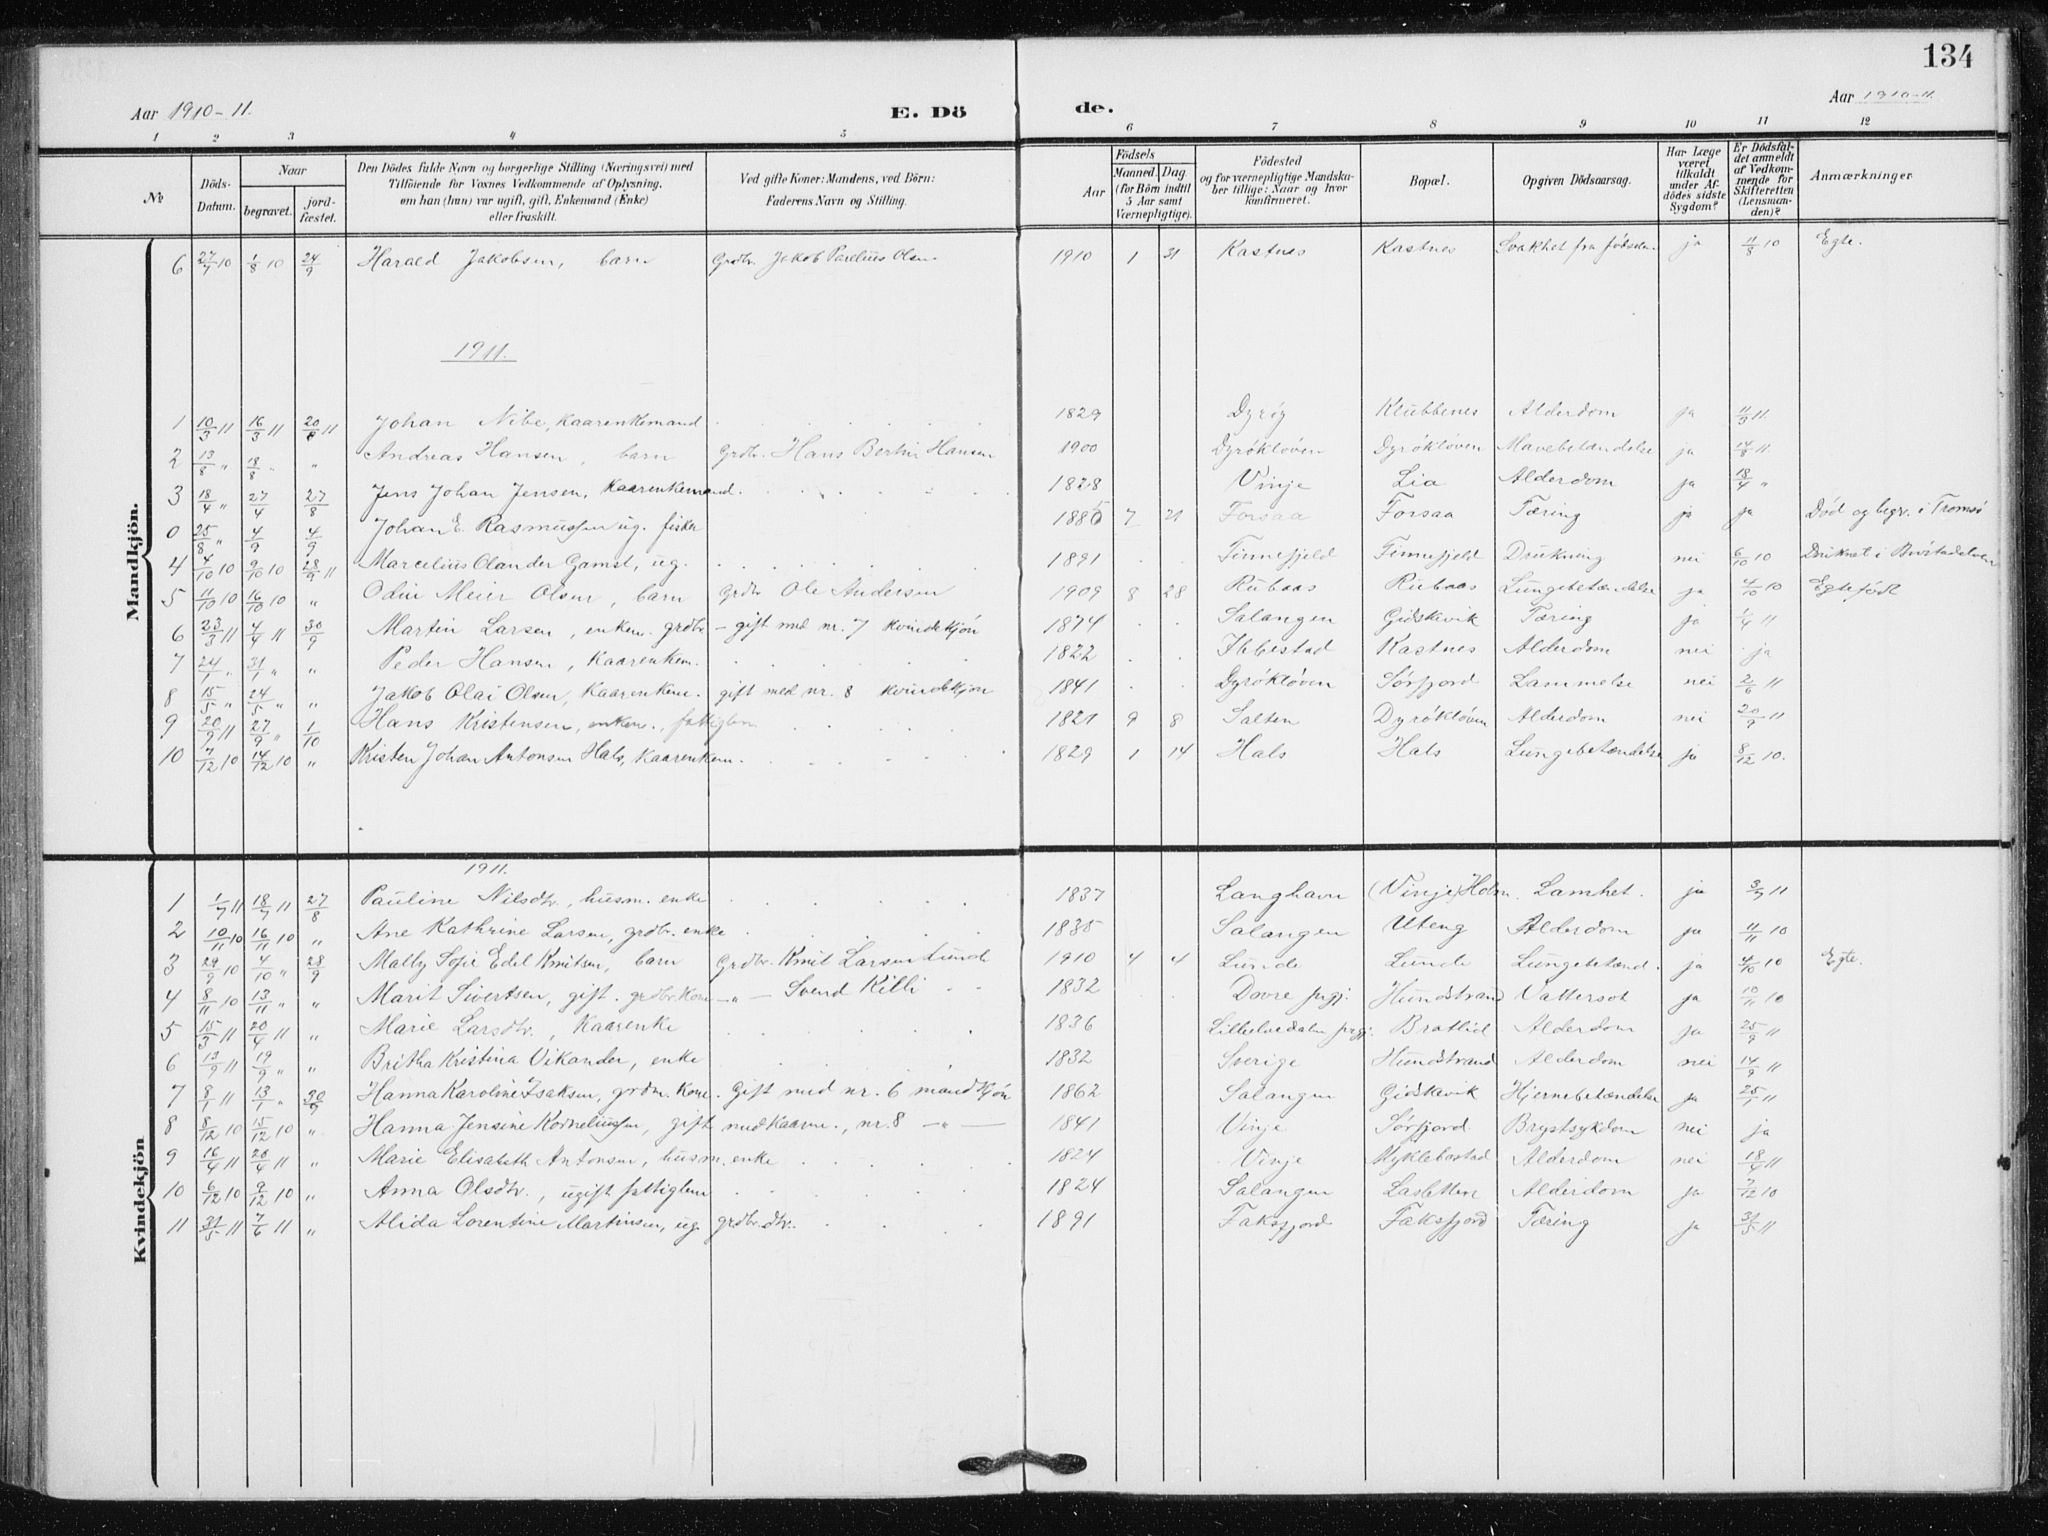 134
Aar 1910-11. E. Dö de. Aar 1910-11.
1 2 3 4 5 6 7 8 9 10 11 12
№ Döds-Datum. Naar begravet. jordfæstet. Den Dödes fulde Navn og borgerlige Stilling (Næringsvei) med Tilföiende for Voxnes Vedkommende af Oplysning, om han (hun) var ugift, gift, Enkemand (Enke) eller fraskilt. Ved gifte Koner: Mandens, ved Börn: Faderens Navn og Stilling. Födsels Aar Maaned. Dag. (for Börn indtil 5 Aar samt Værnepligtige). Födested og for værnepligtige Mandskaber tillige: Naar og hvor konfirmeret. Bopæl. Opgiven Dödsaarsag. Har Læge været tilkaldt under Afdödes sidste Sygdom? Er Dödsfaldet anmeldt af Vedkommende for Skifteretten (Lensmanden)? Anmærkninger
Mandkjön.
6 27/7 10 1/8 10 24/9 Harald Jakobsen, barn Grdbr. Jakob Parelius Olsen 1910 1 31 Kastnes Kastnes Svakhet fra fødselen ja 11/8 10 Egte.
1911.
1 10/3 11 16/3 11 20/8 11 Johan Nibe, Kaarenkemand 1829 Dyrøy Klubbenes Alderdom ja 11/3 11.
2 13/8 " 18/8 " " Andreas Hansen, barn Grdbr. Hans Bertin Hansen 1900 Dyrökløven Dyrökløven Mavebetændelse ja 14/8 11.
3 18/4 " 27/4 27/8 Jens Johan Jensen, Kaarenkemand. 1828 Vinje Lia Alderdom ja 18/4 "
0 25/8 " 4/9 4/9 Johan E. Rasmussen ug. fisker 1886 7 21 Forsaa Forsaa Tæring ja ja Död og begr. i Tromsö
4 4/10 10 9/10 10 28/9 11 Marcelius Olander Gamst, ug. 1891 Finnefjeld Finnefjeld Drukning nei 6/10 10 Druknet i
5 11/10 10 16/10 10 " Odin Meier Olsen, barn Grdbr Ole Andersen 1909 8 28 Rubaas Rubaas Lungebetændelse ja 4/10 10 Egtefödt
6 23/3 11 4/4 11 30/9 Martin Larsen, enkem. grdbr - gift med nr. 7 kvindekjön 1874 Salangen Gidskevik Tæring ja 1/4 11
7 24/1 " 31/1 " " Peder Hansen, Kaarenkem. 1822 Ibbestad Kastnes Alderdom nei ja
8 15/5 " 24/5 " " Jakob Olai Olsen, Kaarenkem. gift med nr. 8 kvindekjön 1841 Dyrökløven Sörfjord Lammelse nei 2/6 11
9 20/9 11 27/9 " 1/10 Hans Kristensen, enkem., fattiglem 1821 9 8 Salten Dyrökløven Alderdom nei 20/9 11
10 7/12 10 14/12 10 " Kristen Johan Antonsen Hals, Kaarenkem. 1829 1 14 Hals Hals Lungebetændelse ja 8/12 10.
Kvindekjön
1911.
1 1/7 11 18/7 11 27/8 Pauline Nilsdtr., husm. enke 1837 Langhavn (Vinje) Holm Lamhet. ja 3/7 11
2 10/11 10 16/11 10 " Ane Kathrine Larsen, grdbr. enke 1835 Salangen Uteng Alderdom ja 11/11 10
3 29/9 10 4/10 " 28/9 Mally Sofie Edel Knutsen, barn Grdbr. Knut Larsen Lunde 1910 4 4 Lunde Lunde Lungebetænd. ja 4/10 10 Egte.
4 8/11 10 13/11 " " Marit Sivertsen, gift. grdbr. Kone - " - Svend Killi 1832 Dovre prgj. Hundstrand Vattersot ja 10/11 10
5 15/3 11 20/4 11 " Marie Larsdtr., Kaarenke 1836 Lilleelvedalen prgj. Bratlid Alderdom ja 25/9 11
6 13/9 11 19/9 " " Britha Kristina Vikander, enke 1832 Sverige Hundstrand Alderdom nei 14/9 11
7 8/1 11 13/1 " 30/9 Hanna Karoline Isaksen, grdm. Kone. Gift med nr. 6 mandkjön 1862 Salangen Gidskevik Hjernebetændelse ja 25/1 11
8 8/12 10 15/12 10 " Hanna Jensine Korneliussen, gift med Kaarm., nr. 8 - " - 1841 Vinje Sörfjord Brystsykdom nei ja
9 16/4 11 20/4 11 " Marie Elisabeth Antonsen, husm. enke 1824 Vinje Myklebostad Alderdom nei 18/4 11
10 6/12 10 9/12 10 " Anna Olsdtr., ugift fattiglem 1824 Salangen Lasletten Alderdom ja 7/12 10
11 31/5 11 7/6 11 " Alida Lorentine Martinsen, ug. grdbr. dtr. 1891 Faksfjord Faksfjord Tæring ja 31/5 11